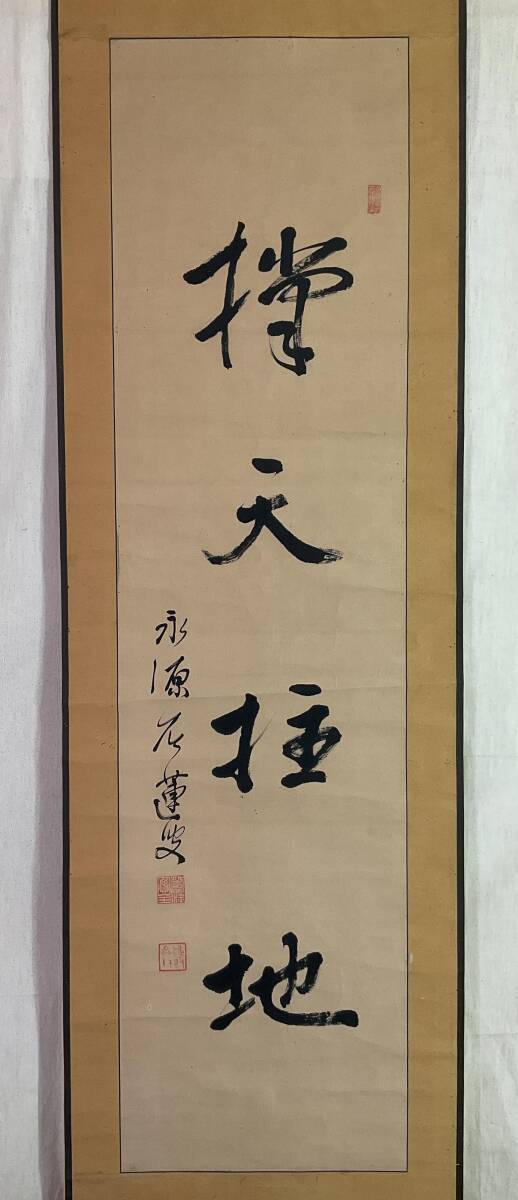 撑天拄地
永源石蓮叟